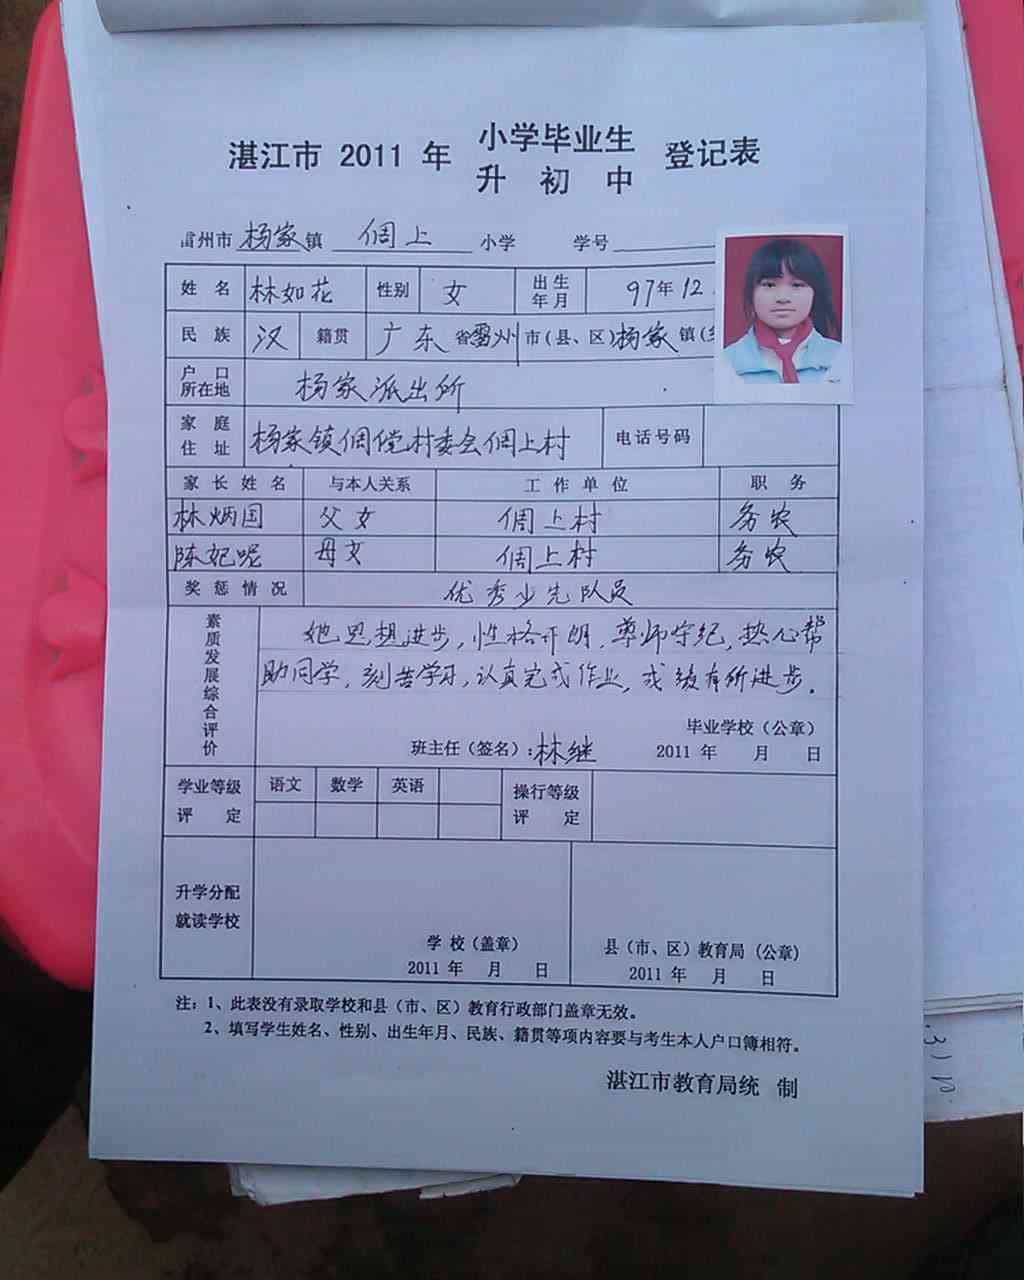 湛江市 2011 年 小学毕业生 登记表
升 初 中
雷州市 杨家 镇 倜上 小学 学号
姓 名 林如花 性别 女 出生年月 97年12
民 族 汉 籍贯 广东 省雷州 市(县、区)杨家 镇(
户 口 所在地 杨家派出所
家 庭 住 址 杨家镇倜傥村委会倜上村 电话号码
家 长 姓 名 与本人关系 工 作 单 位 职 务
林炳国 父女 倜上村 务农
陈妃呢 母女 倜上村 务农
奖 惩 情 况 优秀少先队员
素质发展综合评价
她思想进步,性格开朗,尊师守纪,热心帮
助同学,刻苦学习,认真完成作业,成绩有所进步.
毕业学校(公章)
班主任(签名):林继 2011 年 月 日
学业等级 语文 数学 英语 操行等级
评 定 评 定
升学分配
就读学校
学 校(盖章) 县(市、区)教育局(公章)
2011 年 月 日 2011 年 月 日
注:1、此表没有录取学校和县(市、区)教育行政部门盖章无效。
2、填写学生姓名、性别、出生年月、民族、籍贯等项内容要与考生本人户口簿相符。
湛江市教育局统 制